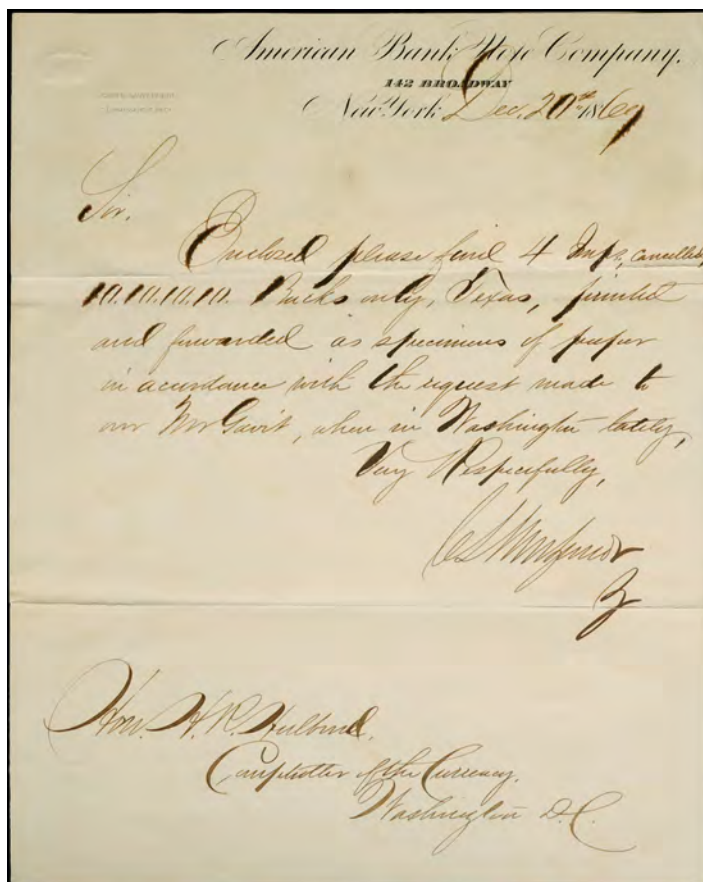 American Bank Note Company.
142 BROADWAY
New York Dec. 20th 1869
Sir.
Enclosed please find 4 Imps, cancelled,
10.10.10.10. Backs only, Texas, printed
and forwarded as specimens of paper
in accordance with the request made to
our Mr Gavit, when in Washington lately,
Very Respectfully,
Hon. H. R. Hulburd.
Comptroller of the Currency.
Washington D.C.